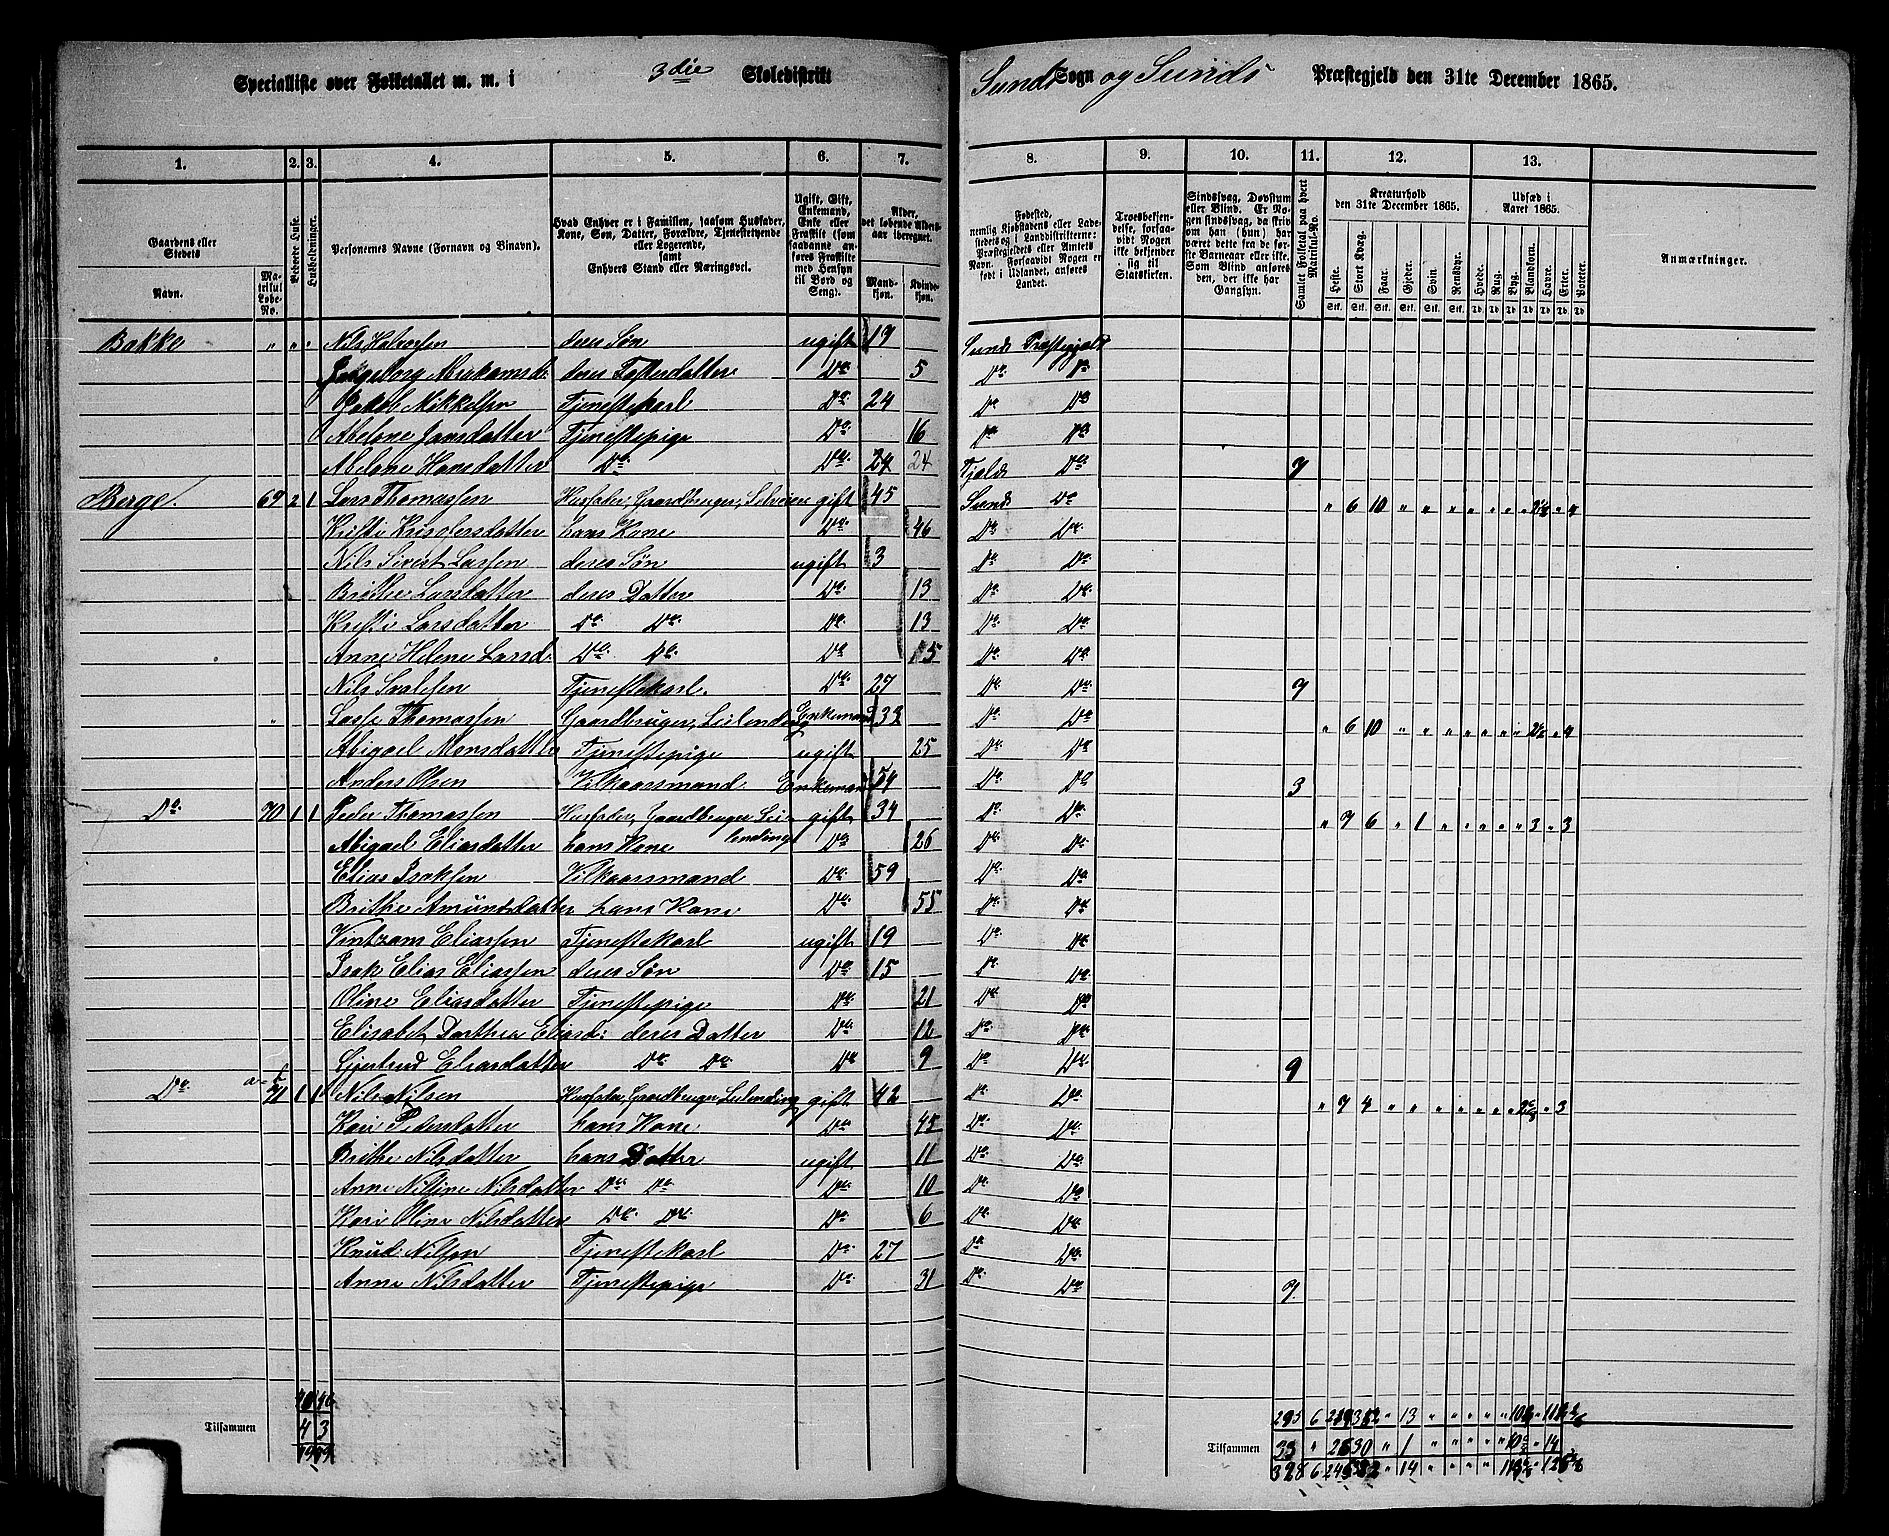 Specialliste over Folketallet m. m. i 3die Skoledistrikt
Sunds Sogn og Sunds Præstegjeld den 31te December 1865.
1. 2. 3. 4. 5. 6. 7. 8. 9. 10. 11. 12. 13.
Gaardens eller Stedets Navn. Matrikul Løbe-No. Beboede Huse. Husholdninger. Personernes Navne (Fornavn og Binavn).
Hvad Enhver er i Familien, saasom Husfader, Kone, Søn, Datter, Forældre, Tjenestetyende eller Logerende, samt Enhvers Stand eller Næringsvei.
Ugift, Gift, Enkemand, Enke eller Fraskilt (som saadanne anføres Fraskilte med Hensyn til Bord og Seng).
Alder, det løbende Aldersaar iberegnet. Mandkjøn. Kvindekjøn.
Fødested, nemlig Kjøbstadens eller Ladestedets og i Landdistrikterne: Præstegjeldets eller Amtets Navn. Forsaavidt Nogen er født i Udlandet, anføres Landet.
Troesbekjendelse, forsaavidt Nogen ikke bekjender sig til Statskirken.
Sindssvag, Døvstum eller Blind. Er Nogen sindssvag, da skrives om han (hun) har været dette fra de første Barneaar eller ikke. Som Blind anføres den, der ikke har Gangsyn.
Samlet Folketal paa hvert Matrikul-No.
Kreaturhold den 31te December 1865. Heste. Stort Kvæg. Faar. Gjeder. Svin. Rensdyr.
Udsæd i Aaret 1865. Hvede. Rug. Byg. Blandkorn. Havre. Erter. Poteter.
Anmærkninger.
Bakke " " " Nils Halvorsen deres Søn ugift 19 Sunds Præstegjeld
Ingeborg deres Fosterdatter Do 5 Do Do
Jakob Mikkelsen Tjenestekarl Do 24 Do Do
Abelone Jansdatter Tjenestepige Do 16 Do Do
Abelone Hansdatter Do Do 24 24 Fjelds Do 7
Berge. 69 2 1 Lars Thomassen Husfader, Gaardbruger, Selveier gift 45 Sunds Do " 6 10 " " " " " " " " 4
Kristi Kristofersdatter hans Kone Do 46 Do Do
Nils Sivert Larsen deres Søn ugift 3 Do Do
Brithe Larsdatter deres Datter Do 13 Do Do
Kristi Larsdatter Do Do Do 13 Do Do
Anne Helene Larsd. Do Do Do 5 Do Do
Nils Tjenestekarl. Do 27 Do Do 9
" Lasse Thomassen Gaardbruger, Leilending Enkemand 38 Do Do " 6 10 " " " " " " " " 4
Abigael Monsdatter Tjenestepige ugift 25 Do Do
Anders Olsen Vilkaarsmand Enkemand 54 Do Do 3
Do 70 1 1 Peder Thomassen Husfader, Gaardbruger Leilending gift 34 Do Do " 7 6 " 1 " " " " " 3 " 3
Abigael Eliasdatter hans Kone Do 26 Do Do
Elias Isaksen Vilkaarsmand Do 59 Do Do
Brithe Amundsdatter hans Kone Do 55 Do Do
Vintzans Eliassen Tjenestekarl ugift 19 Do Do
Isak Elias Eliassen deres Søn Do 15 Do Do
Oline Eliasdatter Tjenestepige Do 21 Do Do
Elisabet Dorthea Eliasd: deres Datter Do 12 Do Do
Gjertrud Eliasdatter Do Do Do 9 Do Do 9
Do 71 1 1 Nils Nilsen Husfader, Gaardbruger Leilending gift 42 Do Do " 7 4 " " " " " " " " 3
Kari Pedersdatter hans Kone Do 45 Do Do
Brithe Nilsdatter hans Datter ugift 11 Do Do
Anne Nilsine Nilsdatter Do Do Do 10 Do Do
Kari Oline Nilsdatter Do Do Do 6 Do Do
Knud Nilsen Tjenestekarl Do 27 Do Do
Anne Nilsdatter Tjenestepige Do 31 Do Do 7.
Tilsammen 4 3
295 6 " 13 " " " " "
Tilsammen 33 " 26 30 " 1 " " " " " " 14
328 6 " 14 " " " " "